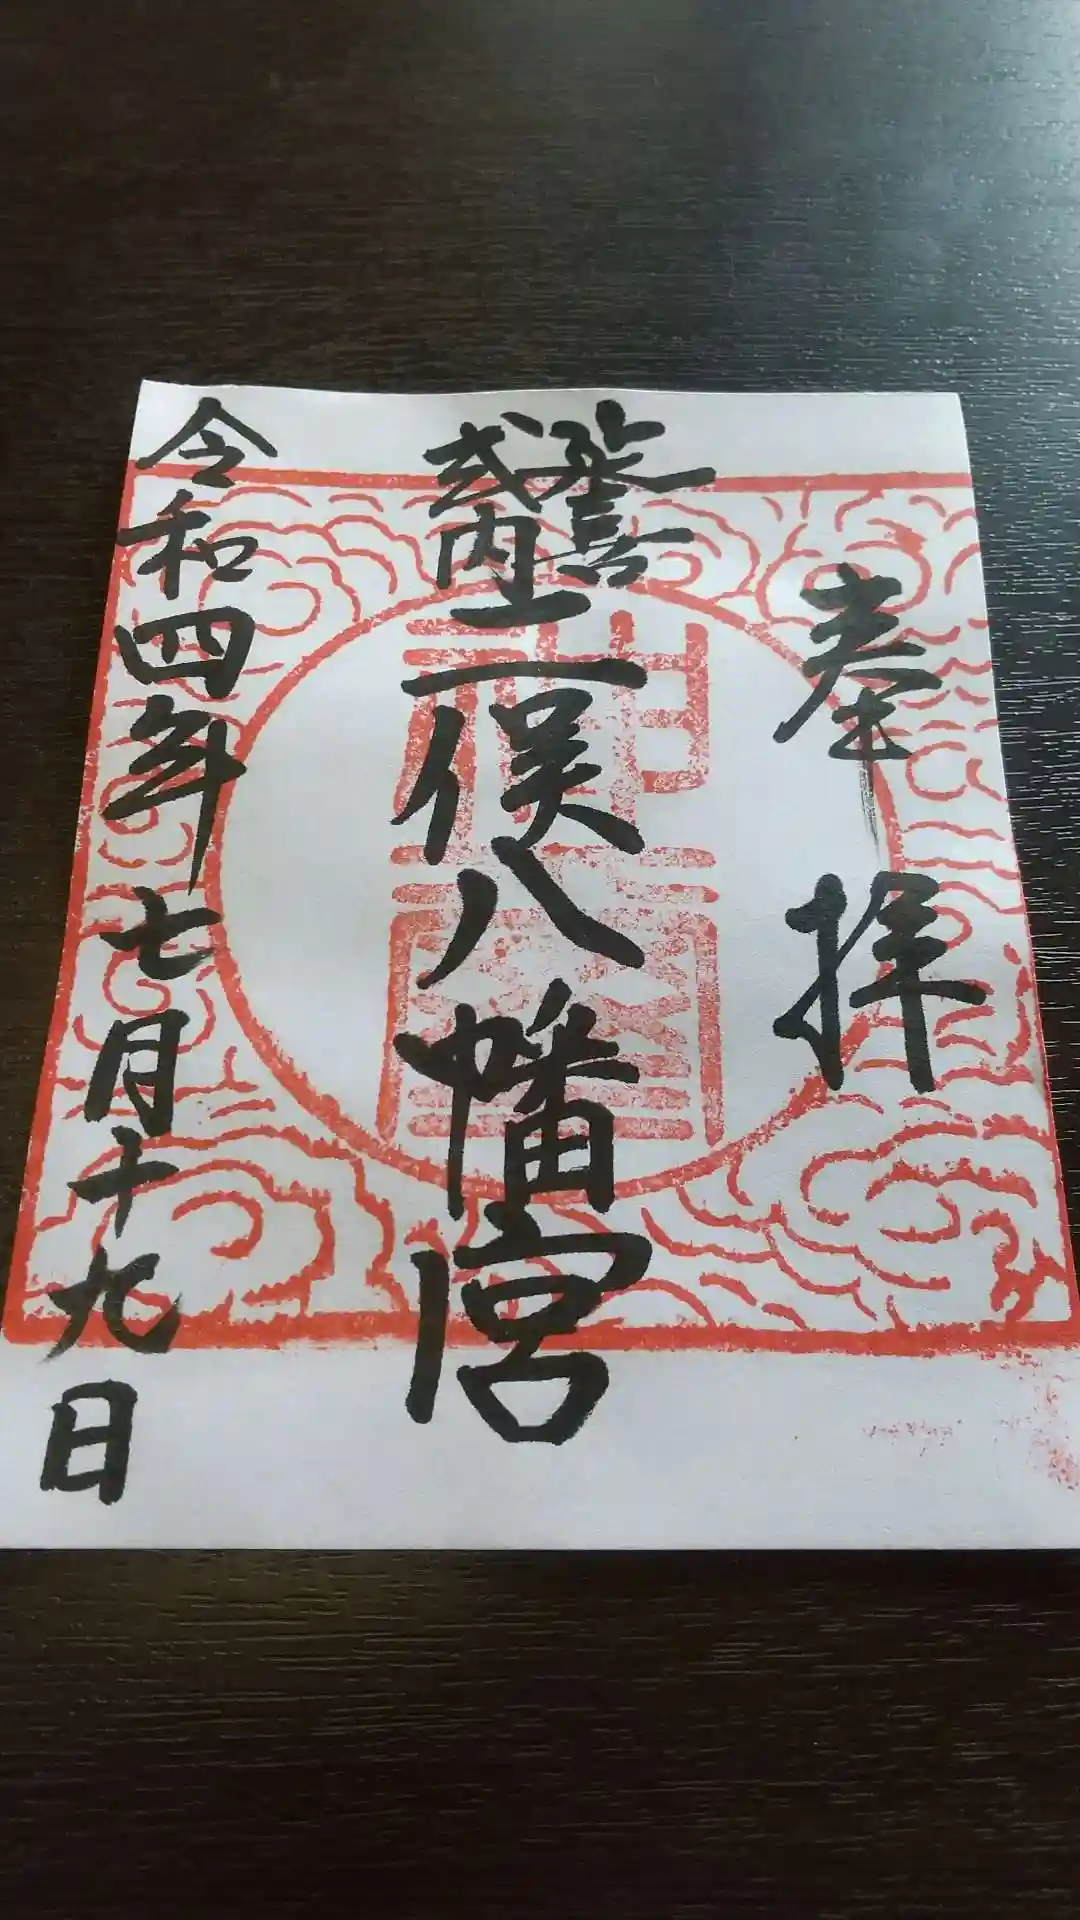 奉拝
延喜
式内
二俣八幡宮
令和四年七月十九日
神璽